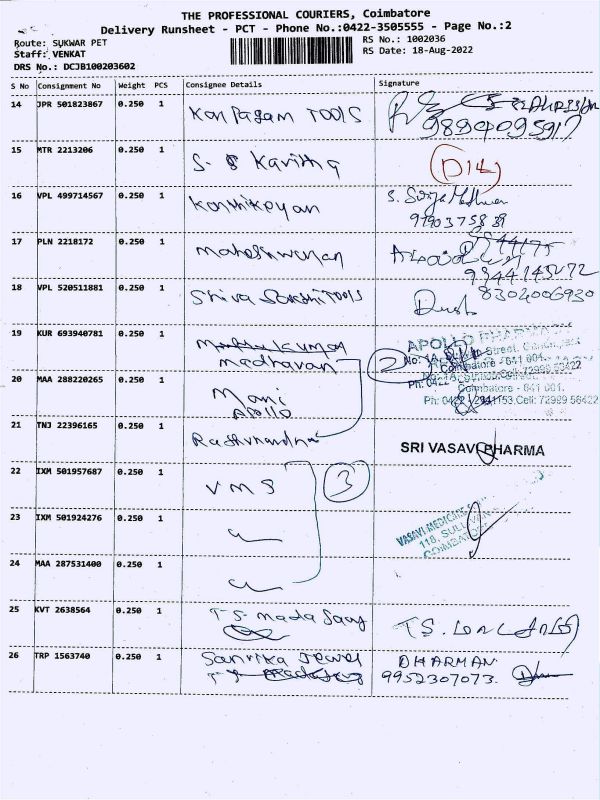 THE PROFESSIONAL COURIERS, Coimbatore
Delivery Runsheet - PCT - Phone No.:0422-3505555 - Page No.:2
Route: SUKWAR PET
Staff: VENKAT
DRS No.: DCJB100203602
RS No.: 1002036
RS Date: 18-Aug-2022
S No Consignment No Weight PCS Consignee Details Signature
14 JPR 501823867 0.250 1 Karpagam TOOLS
9894095917
15 MTR 2213206 0.250 1 S. Kavitha D14
16 VPL 499714567 0.250 1 Karthikeyan
17 PLN 2218172 0.250 1 maheshwaran
9344145272
18 VPL 520511881 0.250 1 Shiva Sakthi TOOLS
8302006930
19 KUR 693940781 0.250 1 Muthukumar
madhavan
APOLLO PHARMA
20 MAA 288220265 0.250 1 Mani
APOLLO
2
Coimbatore - 641 001.
21 TNJ 22396165 0.250 1 Raghunandha
SRI VASAVI PHARMA
22 IXM 501957687 0.250 1 VMS
3
23 IXM 501924276 0.250 1
VASAVI MEDICARE
118, SULLIVAN
COIMBATORE
24 MAA 287531400 0.250 1
25 KVT 2638564 0.250 1 T-S- mada Samy
26 TRP 1563740 0.250 1 Sanvika Jewel
DHARMAN
9952307073